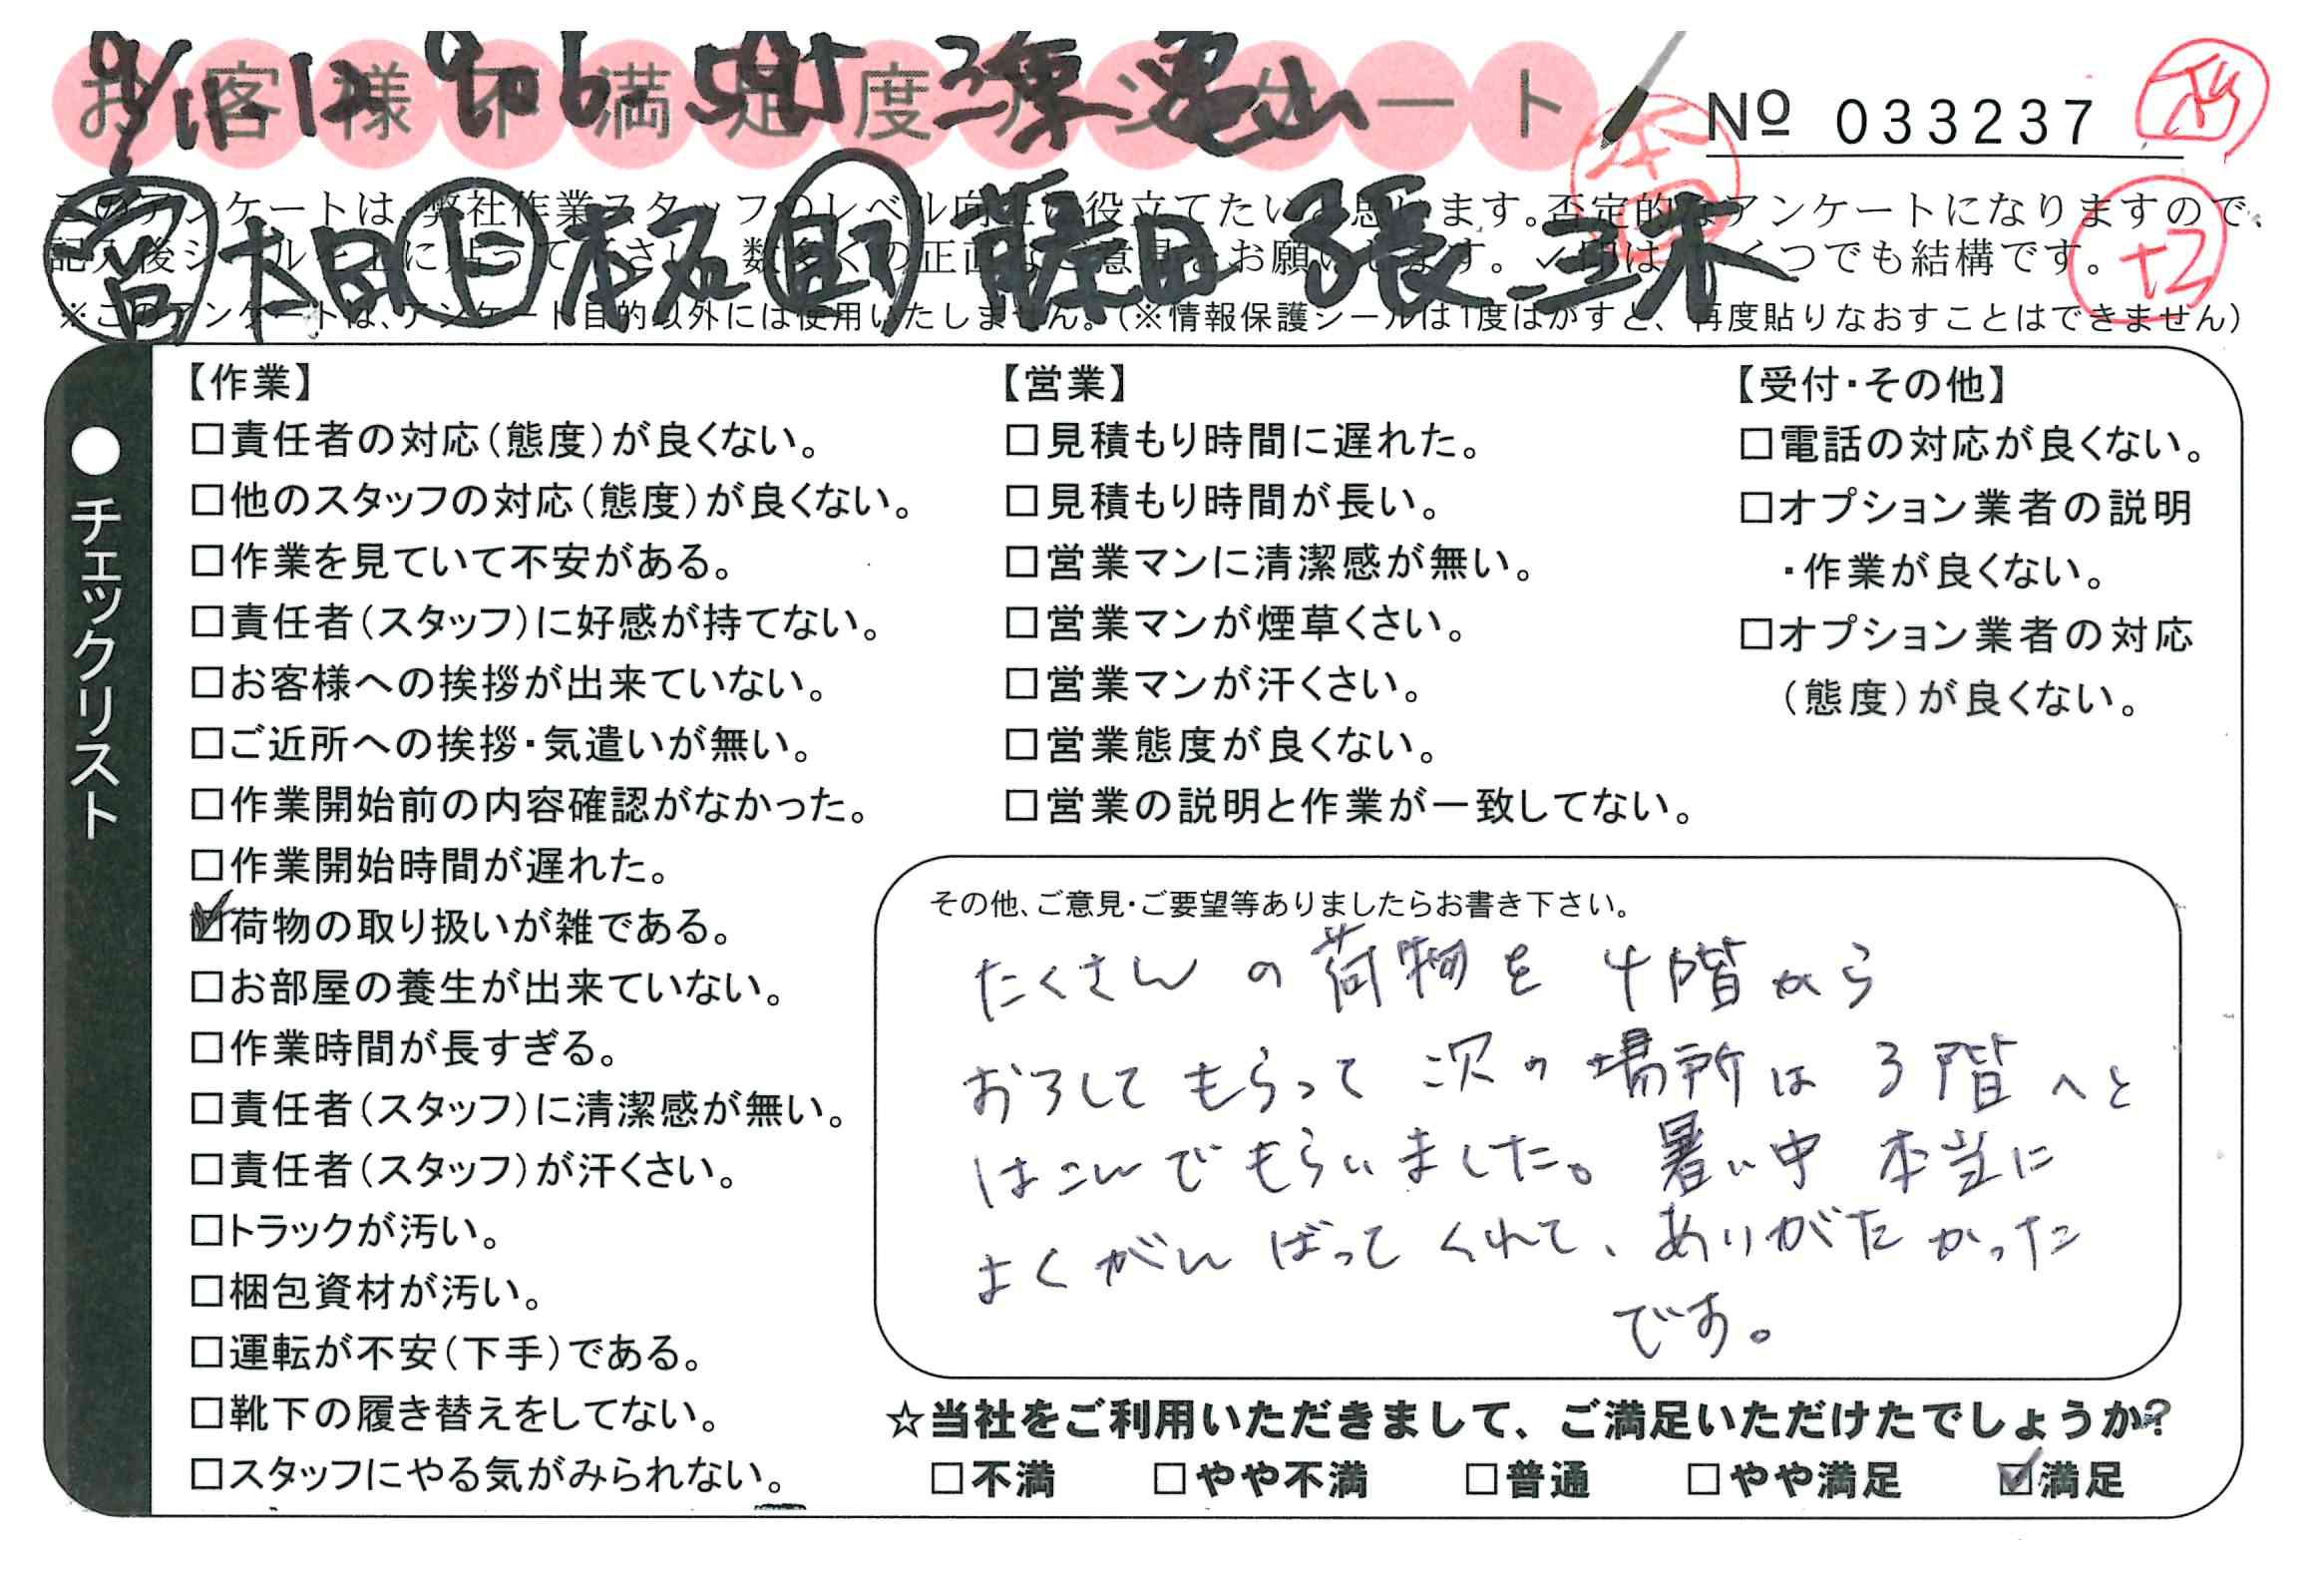 お客様不満足度アンケート
No 033237
このアンケートは、弊社作業スタッフのレベル向上に役立てたいと思います。否定的なアンケートになりますので、
記入後シールを上に貼って下さい。数多くの正直なご意見をお願いします。✓印は、いくつでも結構です。
+2
※このアンケートは、アンケート目的以外には使用いたしません。(※情報保護シールは1度はがすと、再度貼りなおすことはできません)
●チェックリスト
【作業】
□責任者の対応(態度)が良くない。
□他のスタッフの対応(態度)が良くない。
□作業を見ていて不安がある。
□責任者(スタッフ)に好感が持てない。
□お客様への挨拶が出来ていない。
□ご近所への挨拶・気遣いが無い。
□作業開始前の内容確認がなかった。
□作業開始時間が遅れた。
☑荷物の取り扱いが雑である。
□お部屋の養生が出来ていない。
□作業時間が長すぎる。
□責任者(スタッフ)に清潔感が無い。
□責任者(スタッフ)が汗くさい。
□トラックが汚い。
□梱包資材が汚い。
□運転が不安(下手)である。
□靴下の履き替えをしてない。
□スタッフにやる気がみられない。
【営業】
□見積もり時間に遅れた。
□見積もり時間が長い。
□営業マンに清潔感が無い。
□営業マンが煙草くさい。
□営業マンが汗くさい。
□営業態度が良くない。
□営業の説明と作業が一致してない。
【受付・その他】
□電話の対応が良くない。
□オプション業者の説明
・作業が良くない。
□オプション業者の対応
(態度)が良くない。
その他、ご意見・ご要望等ありましたらお書き下さい。
たくさんの荷物を4階から
おろしてもらって次の場所は3階へと
はこんでもらいました。暑い中本当に
よくがんばってくれて、ありがたかった
です。
☆当社をご利用いただきまして、ご満足いただけたでしょうか?
□不満 □やや不満 □普通 □やや満足 ☑満足